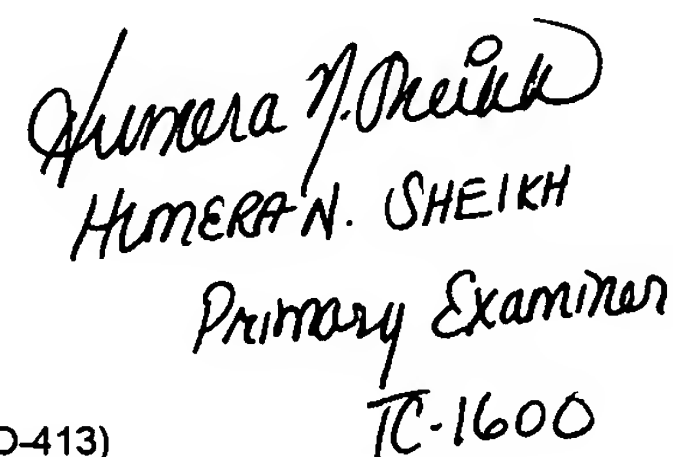 Humera N. Sheikh
HUMERA N. SHEIKH
Primary Examiner
TC-1600
O-413)